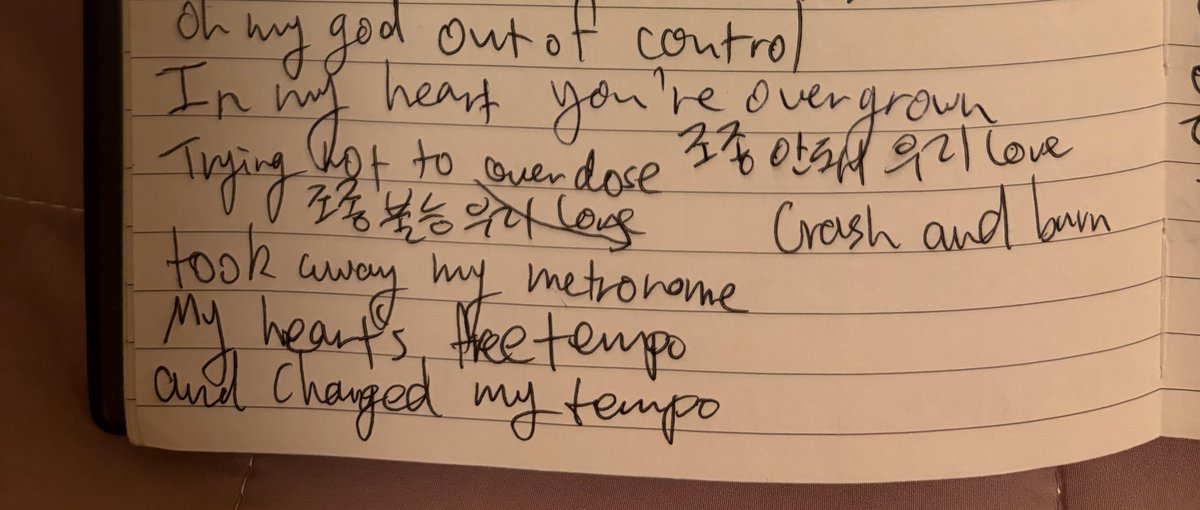 Oh my god out of control
In my heart you're overgrown
Trying not to overdose 조종 안돼 우리 Love
조종 불능 우리 Love Crash and burn
took away my metronome
My heart's free tempo
and changed my tempo